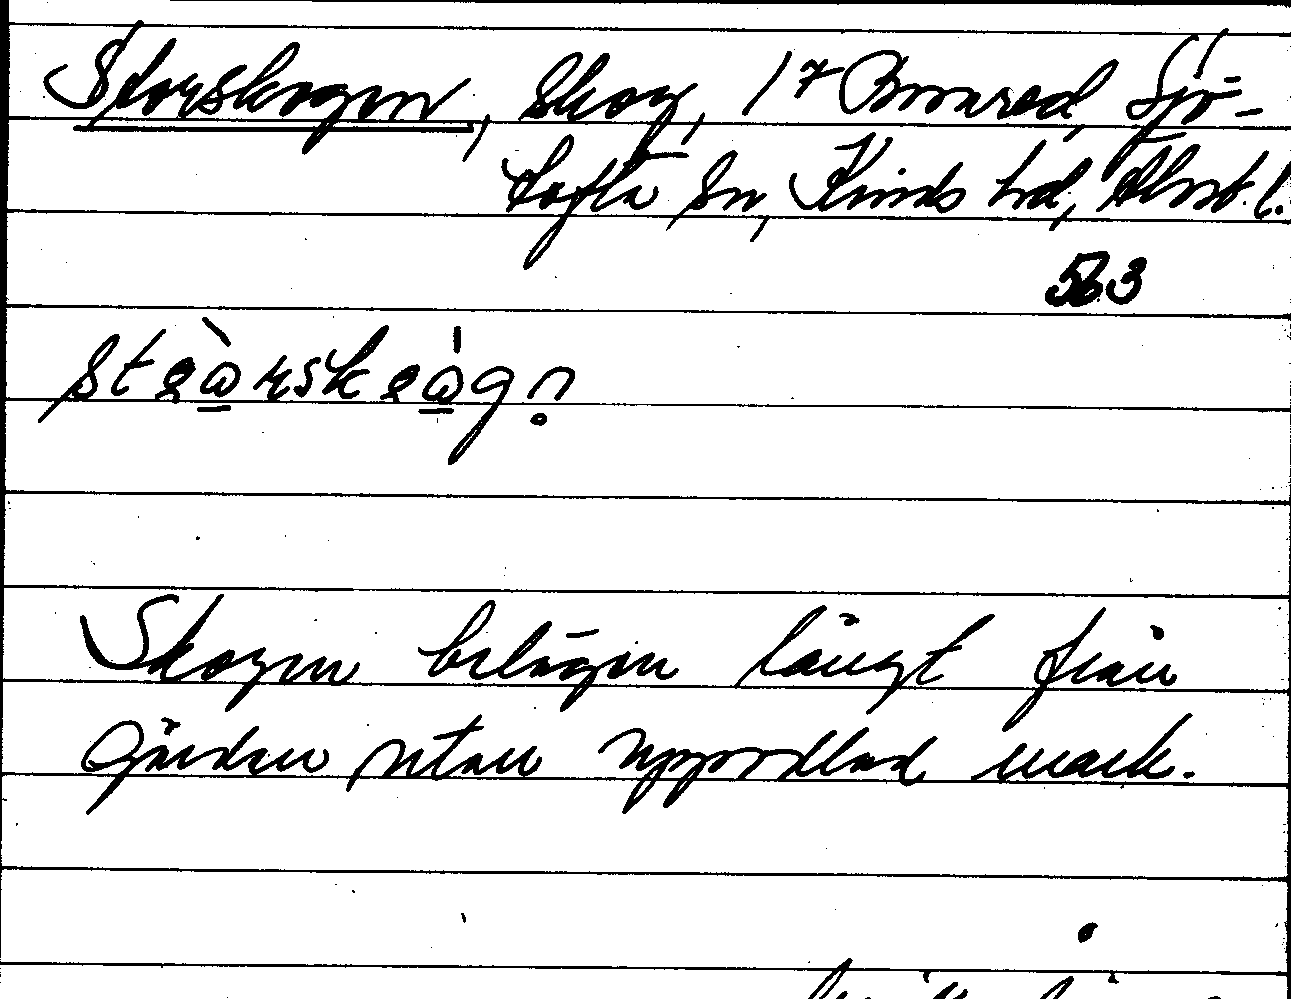 Storskogen, Skog, 1⁷ Brunared, Sjö-
tofta Sn, Kinds hd, Älvsb. l.
563
Skogen belägen långt från
gården utan uppodlad mark.